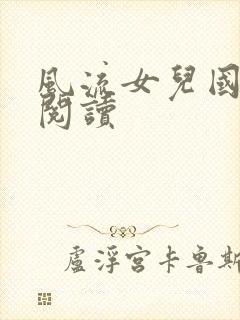 風流女兒國
閱讀
盧浮宮卡魯斯